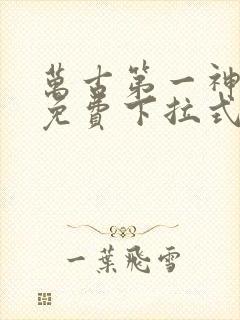 萬古第一神
免費下拉式
一葉飛雪